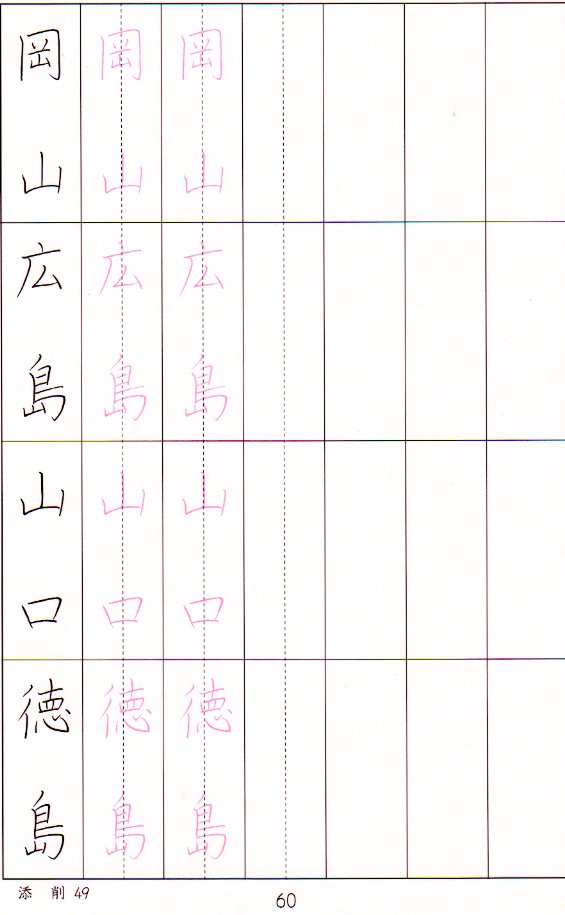 岡山 岡山 岡山
広島 広島 広島
山口 山口 山口
徳島 徳島 徳島
添削 49
60